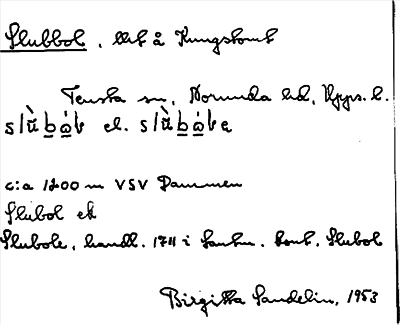 Slubbol, litt å Kungstomt
Tensta sn, Norunda hd, Upps. l.
slù̀bo̱l el. slù̀bo̱le
c:a 1200 m VSV Dammen
Slubol ek
Slubole, handl. 1711 i Lantm. kont. Slubol
Birgitta Sandelin, 1953